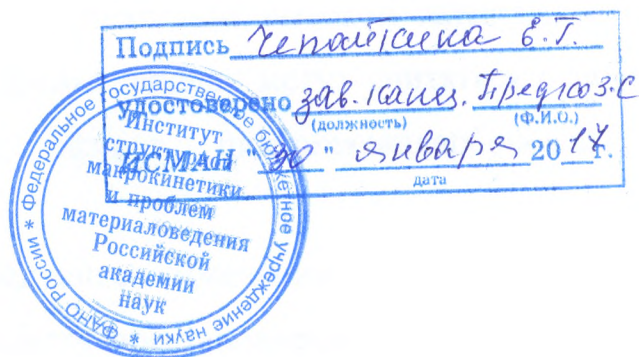 Подпись Чепайкина Е.Г.
удостоверено зав. канц. Предко З.С
(должность) (Ф.И.О.)
ИСМАН "30" января 2017г.
дата
Федеральное государственное бюджетное учреждение науки * ФАНО России *
Институт
структурной
макрокинетики
и проблем
материаловедения
Российской
академии
наук